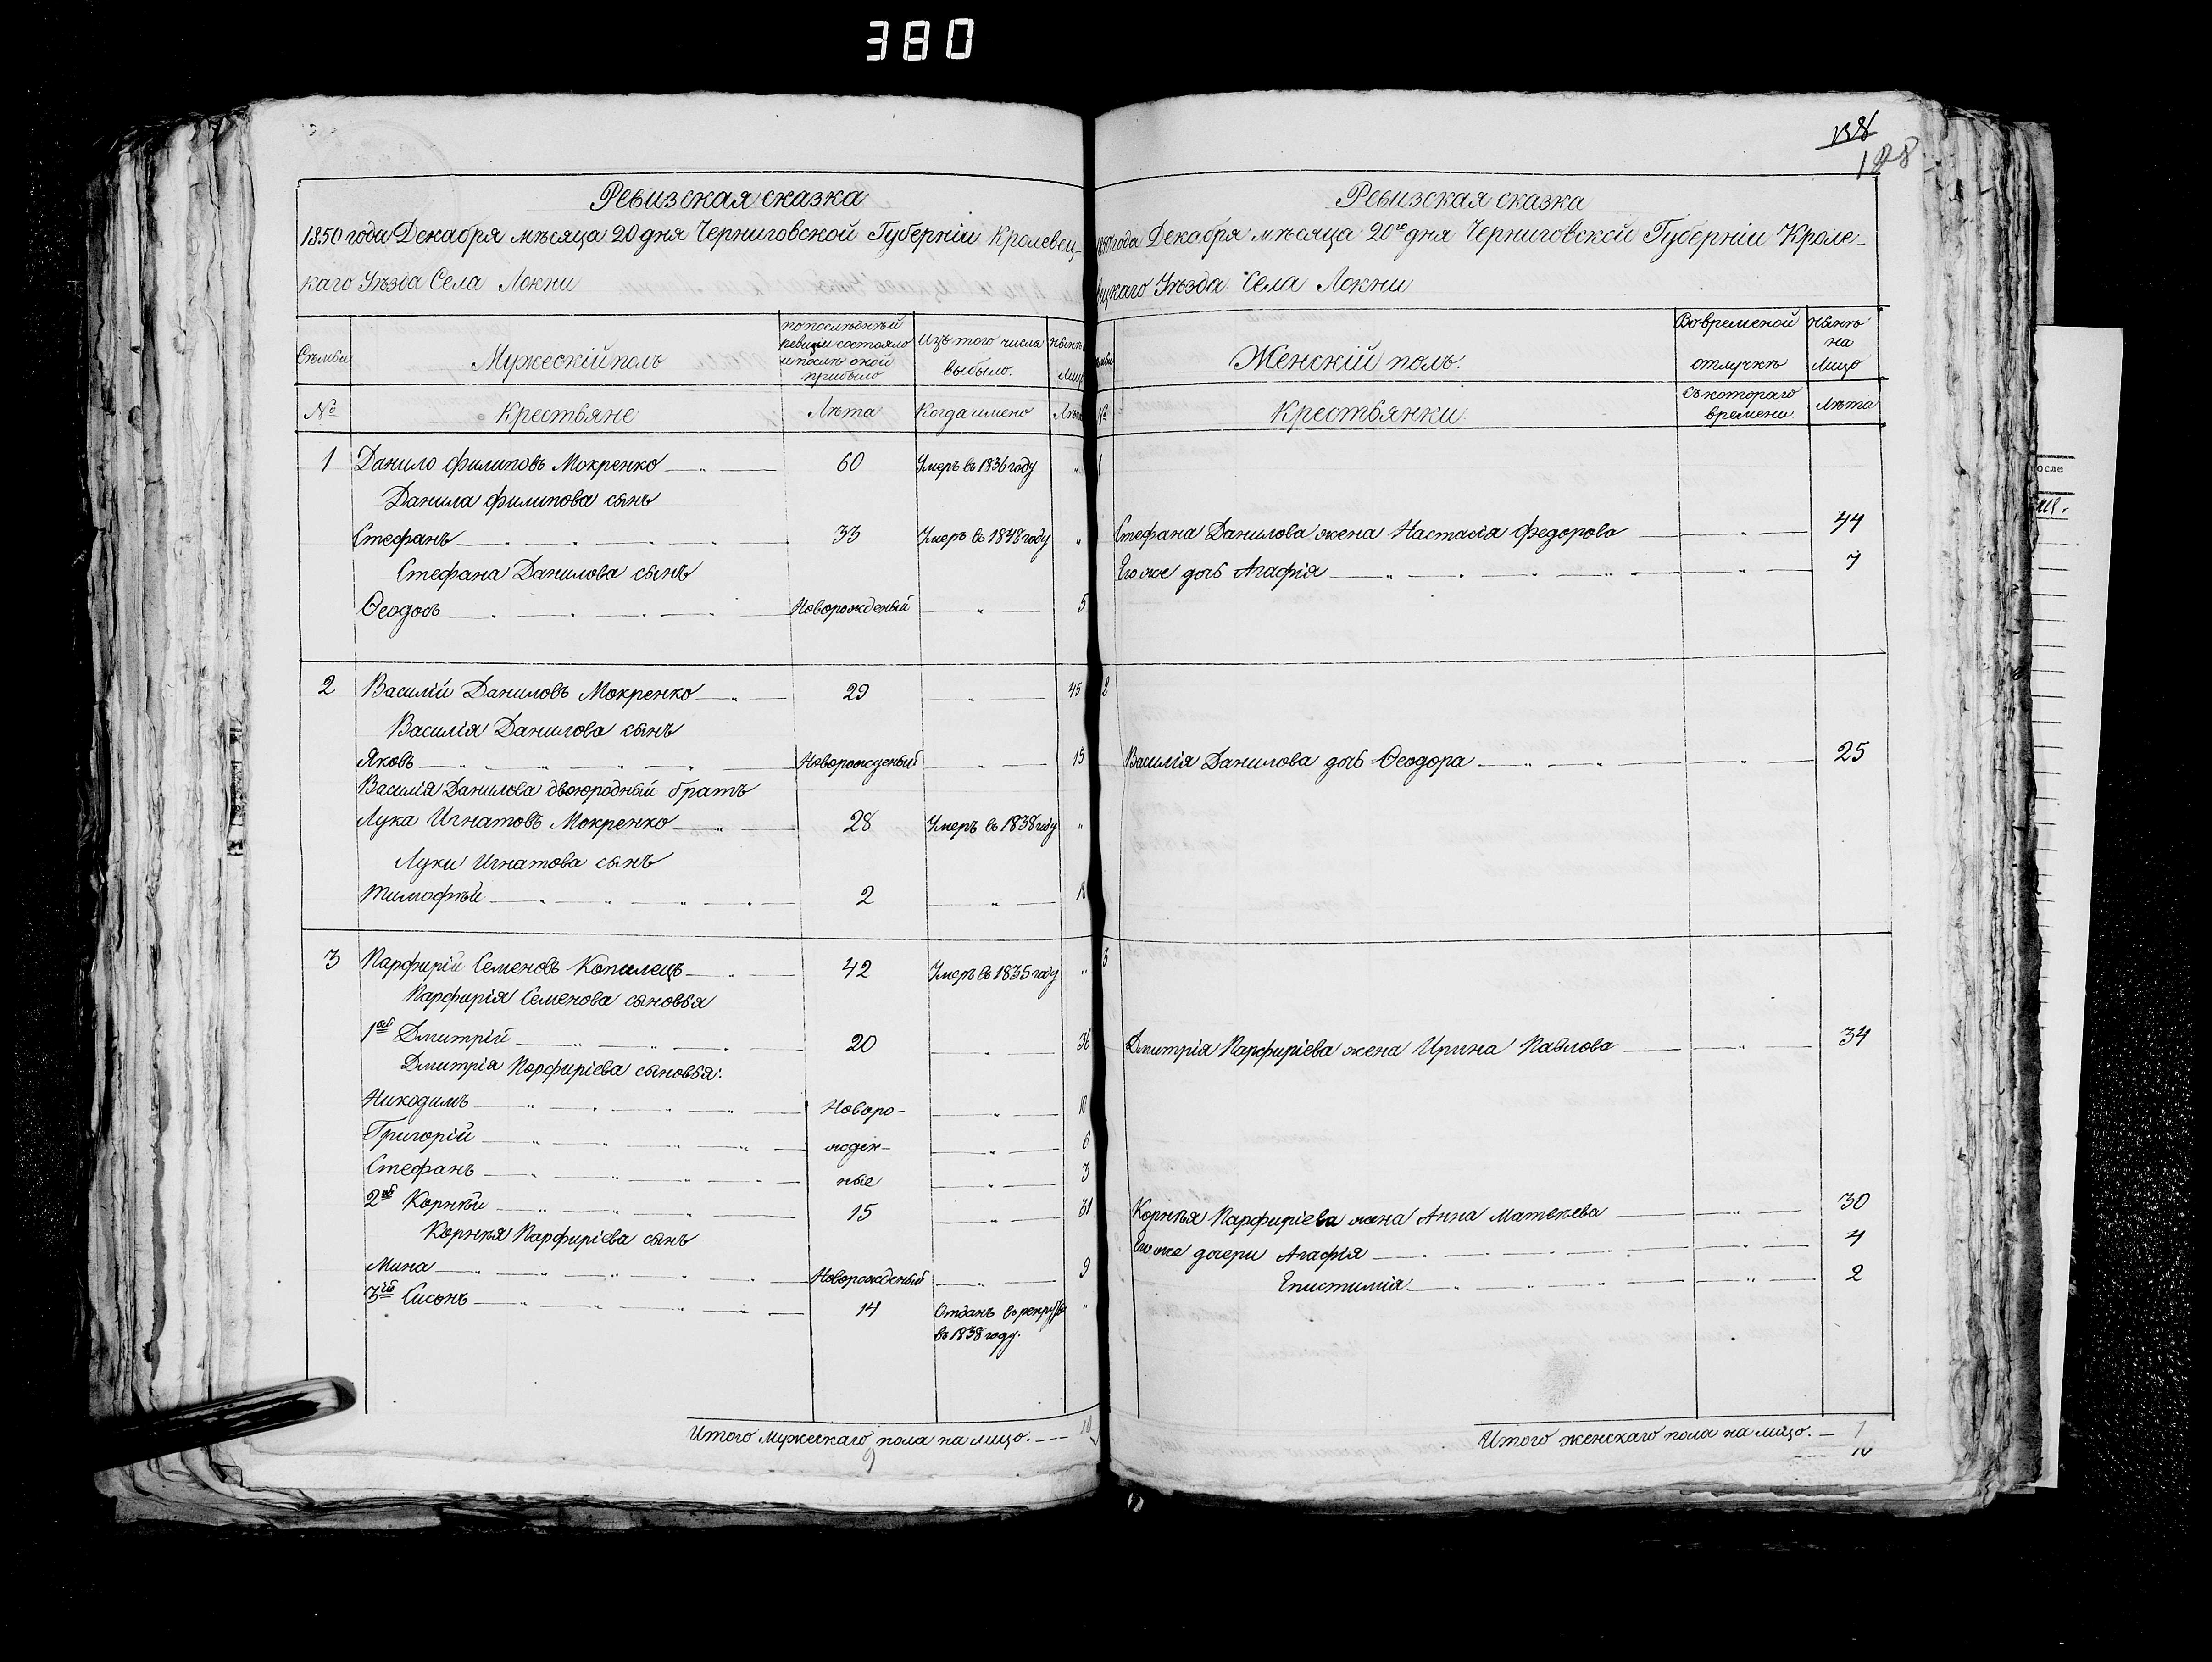 380
138
128
Ревизская сказка
1850 года Декабря мѣсяца 20 дня Черниговской Губерніи Кролевец-
каго Уѣзда Села Локни
Семьи
Мужескій полъ
по послѣдней
ревизіи состояло
и после оной
прибыло
Изъ того числа
выбыло.
Нынѣ
Лицо
№
Крестьяне
Лѣта
Когда имено
Лѣта
1 Данило Филиповъ Мокренко 60 Умеръ въ 1836 году "
Данила Филипова сынъ
Стефанъ 33 Умеръ въ 1848 году "
Стефана Данилова сынъ
Ѳеодосъ Новорожденый " 5
2 Василій Даниловъ Мокренко 29 " 45
Василія Данилова сынъ
Яковъ Новорожденый " 15
Василія Данилова двоюродный братъ
Лука Игнатовъ Мокренко 28 Умеръ въ 1838 году "
Луки Игнатова сынъ
Тимофѣй 2 " 18
3 Парфирій Семеновъ Копилецъ 42 Умеръ въ 1835 году "
Парфирія Семенова сыновья
1ый Дмитрій 20 " 36
Дмитрія Порфиріева сыновья:
Никодимъ Новоро- " 10
Григорій жден- " 6
Стефанъ ные " 3
2ой Корнѣй 15 " 31
Корнѣя Парфиріева сынъ
Мина Новорожденый " 9
3ій Сисонъ 14 Отданъ въ рекруты "
въ 1838 году.
Итого мужескаго пола на лицо. 10
9
Ревизская сказка
1850 года Декабря мѣсяца 20го дня Черниговской Губерніи Кроле-
вецкаго Уѣзда Села Локни
Женскій полъ.
Во временой
отлучкѣ
Нынѣ
на
Лицо
№
Крестьянки
Съ котораго
времени
Лѣта
1
Стефана Данилова жена Настасія Федорова " 44
Его же дочь Агафія " 7
2
Василія Данилова дочь Ѳеодора " 25
3
Дмитрія Парфиріева жена Ирина Павлова " 34
Корнѣя Парфиріева жена Анна Матвѣева " 30
Его же дочери Агафія " 4
Епистимія " 2
Итого женскаго пола на лицо. 7